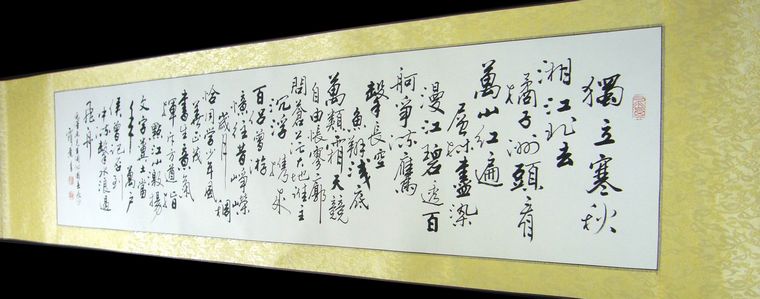 獨立寒秋
湘江北去
橘子洲頭看
萬山紅遍
層林盡染
漫江碧透百
舸爭流鷹
擊長空
魚翔淺底
萬類霜天競
自由悵寥廓
問蒼茫大地誰主
沉浮攜來
百侣曾游
憶往昔崢嶸
歲月稠
恰同學少年風
華正茂
書生意氣
揮斥方遒指
點江山激揚
文字糞土當
年萬戶
侯曾記否到
中流擊水浪遏
飛舟